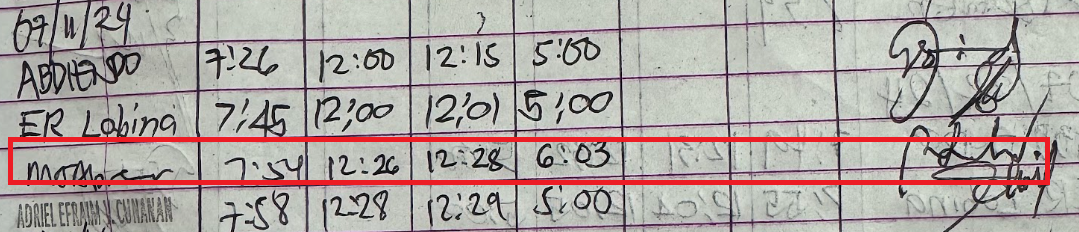 07/11/24
ABDIENDO 7:26 12:00 12:15 5:00
ER Labina 7:45 12:00 12:01 5:00
7:54 12:26 12:28 6:03
ADRIEL EFRAIM Y. CUNANAN 7:58 12:28 12:29 5:00